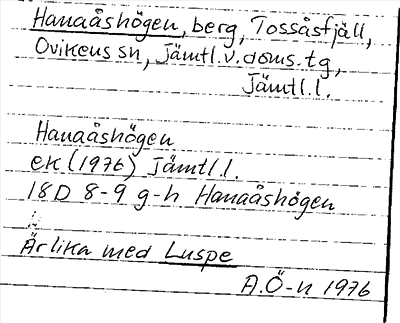 Hanaåshögen, berg, Tossåsfjäll,
Ovikens sn, Jämtl.v.doms.tg,
Jämtl.l.
Hanaåshögen
ek (1976) Jämtl.l.
18D 8-9 g-h Hanaåshögen
Är lika med Luspe
A.Ö-n 1976